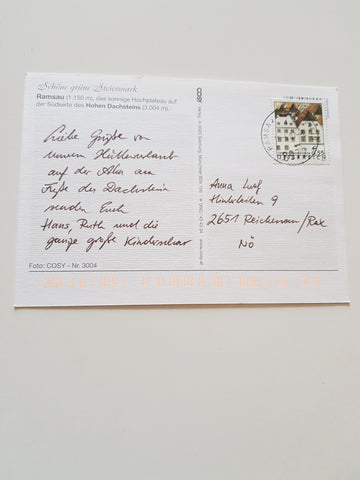 Schöne grüne Steiermark
Ramsau (1.150 m), das sonnige Hochplateau auf
der Südseite des Hohen Dachsteins (3.004 m).
Liebe Grüße von
unserem Hüttenurlaub
auf der Alm am
Fuße des Dachstein
senden Euch
Hans, Ruth und die
ganze große Kinderschar
Foto: COSY - Nr. 3004
COSY
Anna Luef
Hinterleiten 9
2651 Reichenau/Rax
NÖ
RAMSAU